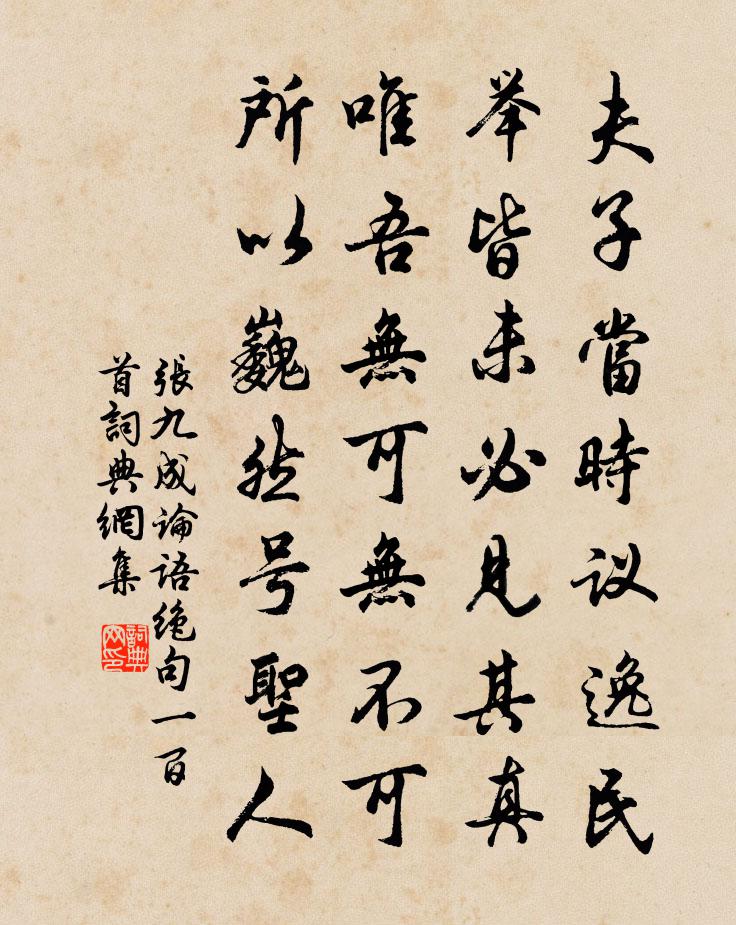 夫子當時议逸民
举皆未必見其真
唯吾無可無不可
所以巍然号聖人
張九成论语绝句一百
首詞典網集
詞典
网印